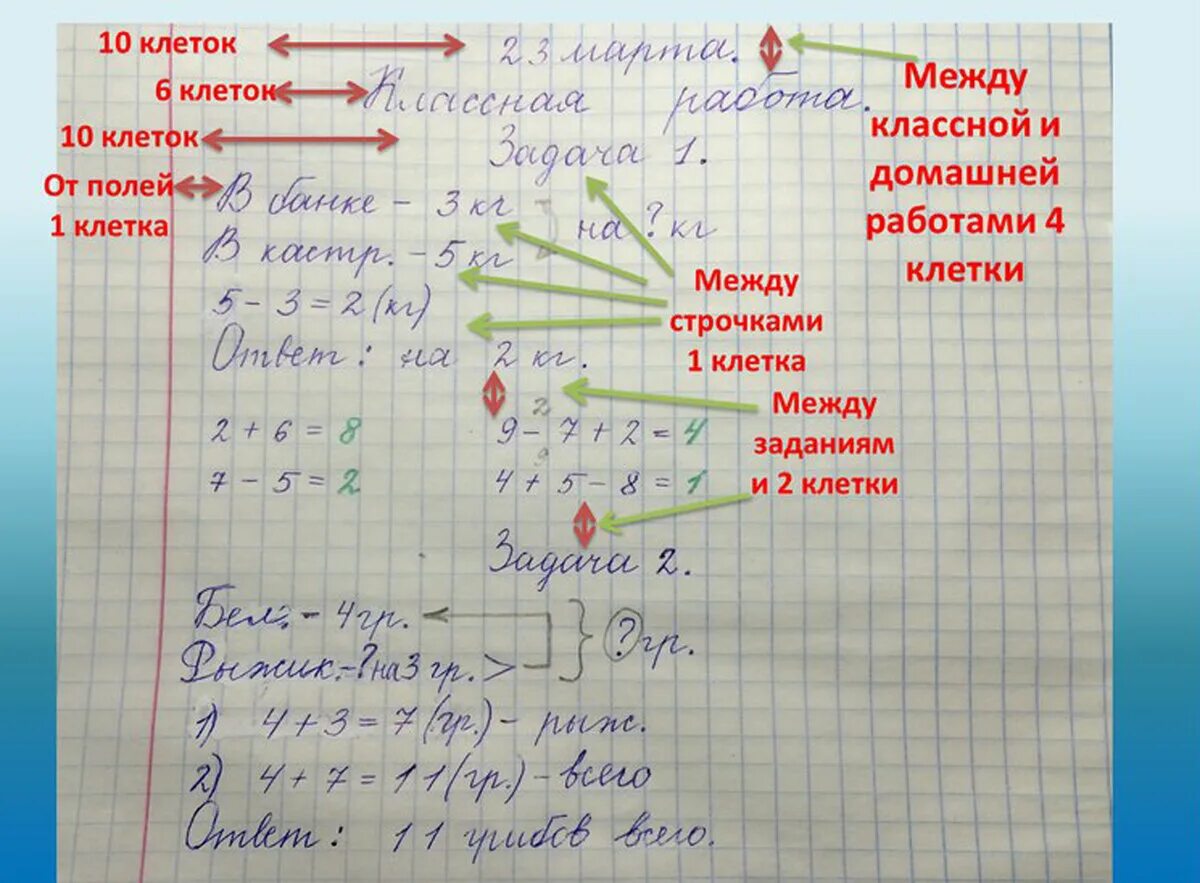 10 клеток
23 марта.
6 клеток
Классная работа.
10 клеток
Задача 1.
От полей
1 клетка
В банке - 3 кг
на ? кг
В кастр. - 5 кг
5 - 3 = 2 (кг)
Ответ: на 2 кг.
Между
классной и
домашней
работами 4
клетки
Между
строчками
1 клетка
Между
заданиям
и 2 клетки
2
2 + 6 = 8
9 - 7 + 2 = 4
9
7 - 5 = 2
4 + 5 - 8 = 1
Задача 2.
Бел. - 4 гр.
? гр.
Рыжик. - ? на 3 гр. >
1) 4 + 3 = 7 (гр.) - рыж.
2) 4 + 7 = 11 (гр.) - всего
Ответ: 11 грибов всего.